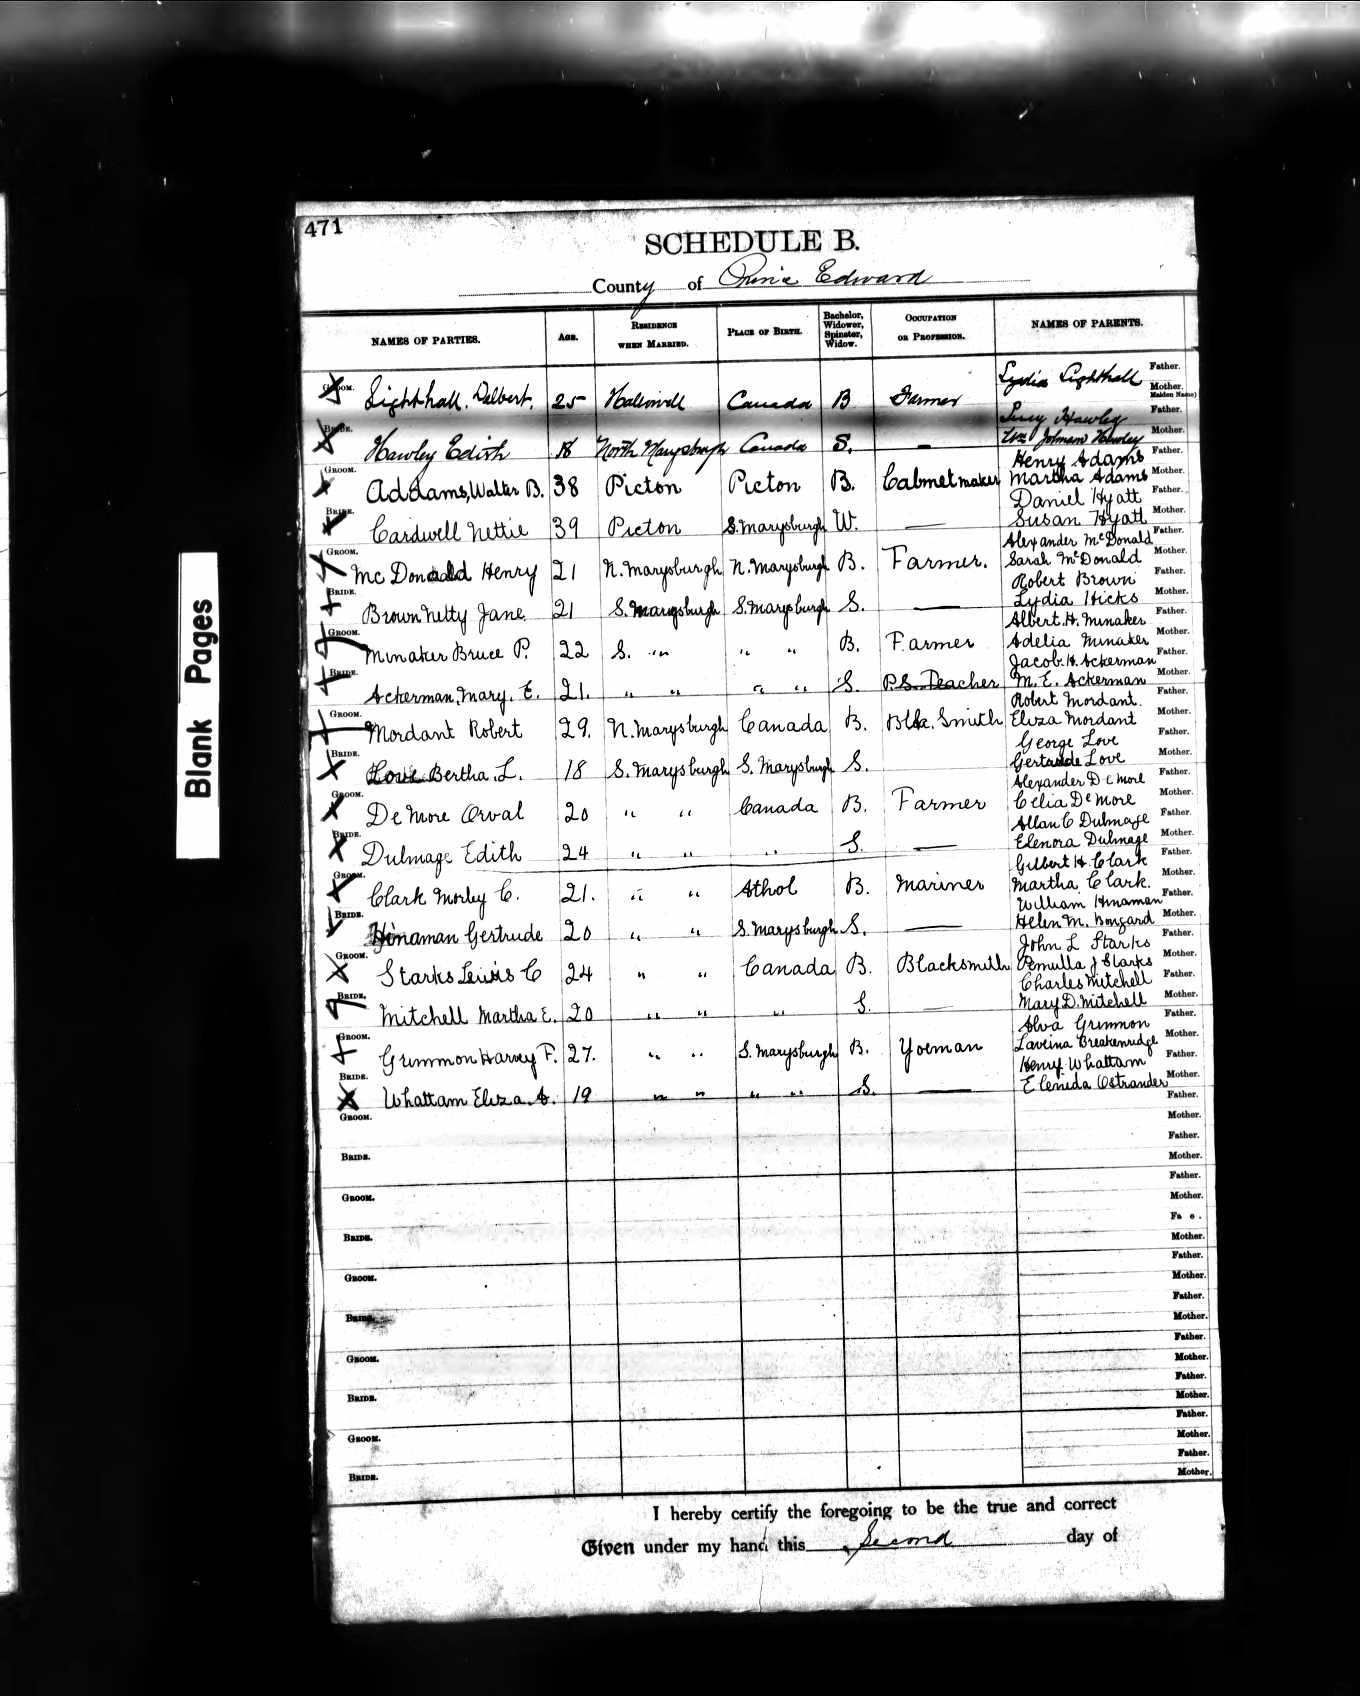 471
SCHEDULE B.
County of Prince Edward
NAMES OF PARTIES. AGE. RESIDENCE WHEN MARRIED. PLACE OF BIRTH. Bachelor, Widower, Spinster, Widow. OCCUPATION OR PROFESSION. NAMES OF PARENTS.
Father.
GROOM. Lighthall, Delbert. 25 Hallowell Canada B Farmer Lydia Lighthall Mother. Maiden Name)
Percy Hawley Father.
BRIDE. Hawley Edith 18 North Marysburgh Canada S. — Johnson Hawley Mother.
Henry Adams Father.
GROOM. Addams, Walter B. 38 Picton Picton B. Cabinet maker Martha Adams Mother.
Daniel Hyatt Father.
BRIDE. Cardwell Nettie 39 Picton S. Marysburgh W. — Susan Hyatt Mother.
Alexander McDonald Father.
GROOM. McDonald Henry 21 N. Marysburgh N. Marysburgh B. Farmer. Sarah McDonald Mother.
Robert Brown Father.
BRIDE. Brown Netty Jane 21 S. Marysburgh S. Marysburgh S. — Lydia Hicks Mother.
Albert H. Minaker Father.
GROOM. Minaker Bruce P. 22 S. " " " B. Farmer Adelia Minaker Mother.
Jacob H. Ackerman Father.
BRIDE. Ackerman, Mary. E. 21. " " " " S. P.S. Teacher M. E. Ackerman Mother.
Robert Mordant. Father.
GROOM. Mordant Robert 29. N. Marysburgh Canada B. Blk. Smith Eliza Mordant Mother.
George Love Father.
BRIDE. Love Bertha L. 18 S. Marysburgh S. Marysburgh S. Gertrude Love Mother.
Alexander DeMore Father.
GROOM. DeMore Orval 20 " " Canada B. Farmer Celia DeMore Mother.
Allan C Dulmage Father.
BRIDE. Dulmage Edith 24 " " " S. — Elenora Dulmage Mother.
Gilbert H. Clark Father.
GROOM. Clark Morley C. 21. " " Athol B. Mariner Martha Clark. Mother.
William Hinaman Father.
BRIDE. Hinaman Gertrude 20 " " S. Marysburgh S. — Helen M. Bongard Mother.
John L Starks Father.
GROOM. Starks Lewis C 24 " " Canada B. Blacksmith Pemulla J Starks Mother.
Charles Mitchell Father.
BRIDE. Mitchell Martha E. 20 " " " S. — Mary D. Mitchell Mother.
Alva Grimmon Father.
GROOM. Grimmon Harvey F. 27. " " S. Marysburgh B. Yoeman Laveina Breakenridge Mother.
Henry Whattam Father.
BRIDE. Whattam Eliza A. 19 " " " " S. — Elenida Ostrander Mother.
Father.
GROOM. Mother.
Father.
BRIDE. Mother.
Father.
GROOM. Mother.
Fa e .
BRIDE. Mother.
Father.
GROOM. Mother.
Father.
BRIDE. Mother.
Father.
GROOM. Mother.
Father.
BRIDE. Mother.
Father.
GROOM. Mother.
Father.
BRIDE. Mother.
I hereby certify the foregoing to be the true and correct
Given under my hand this Second day of
Blank Pages